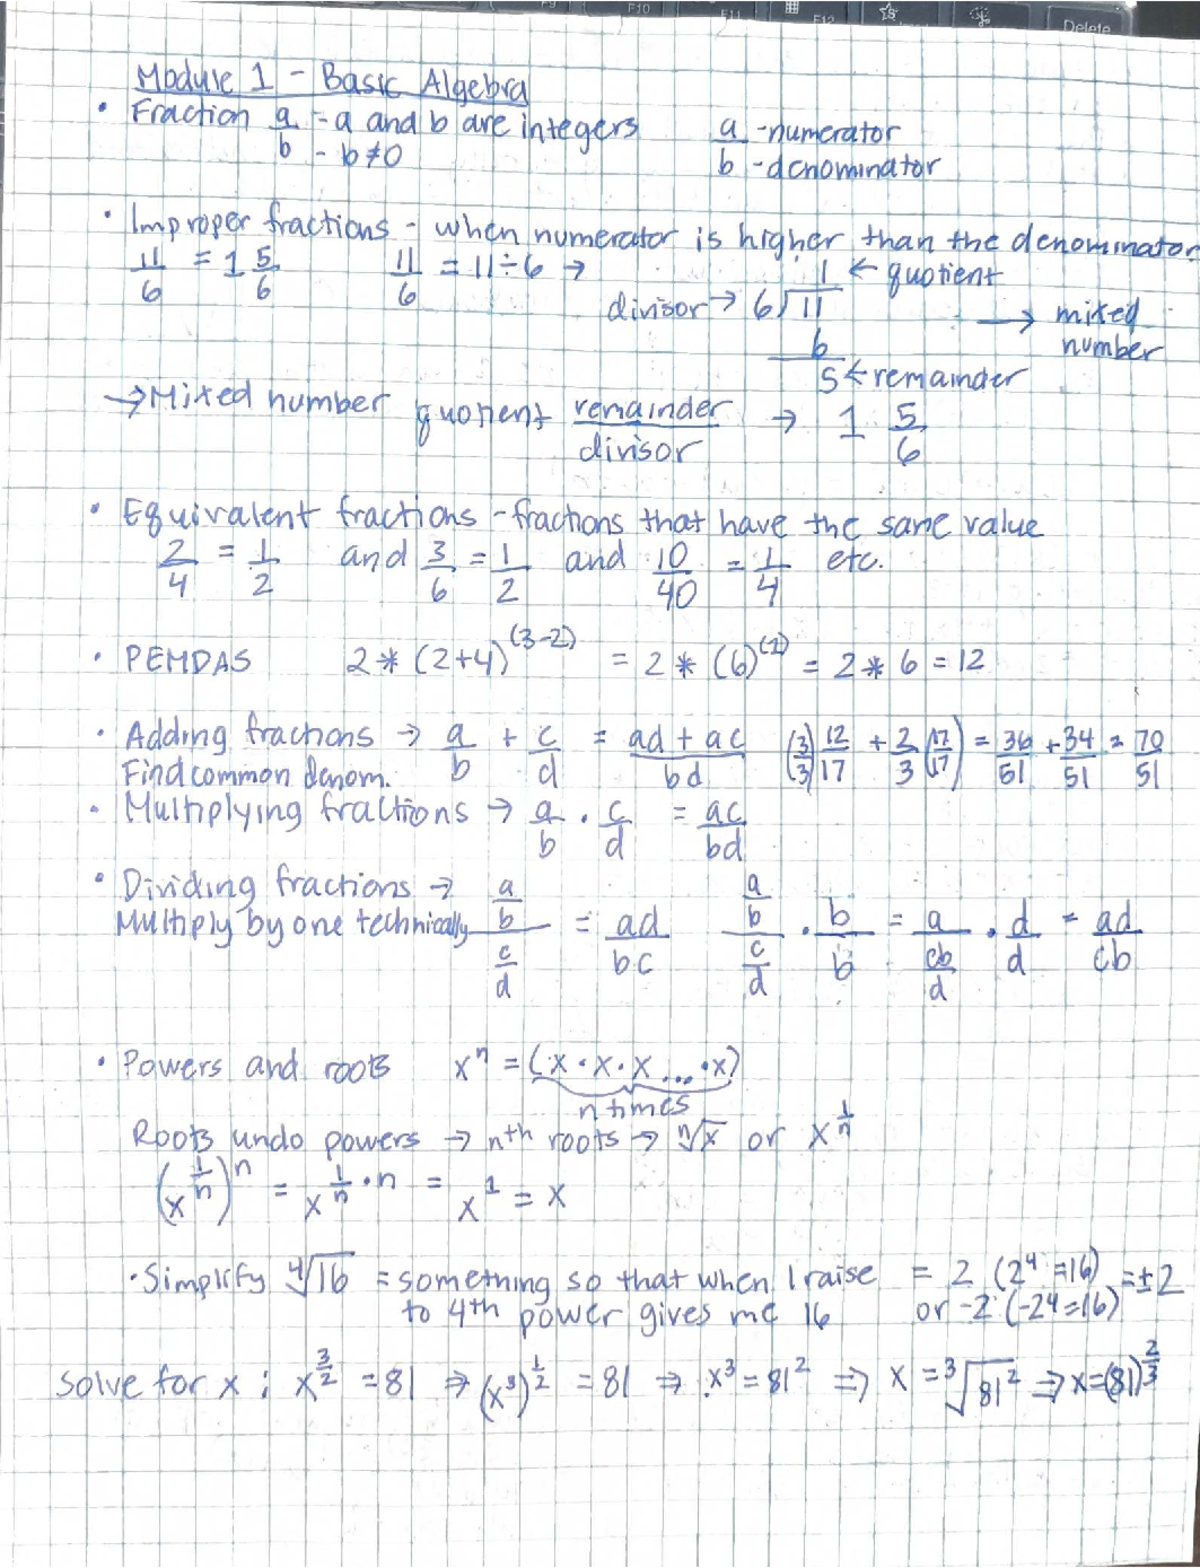 F9 F10 F11 F12 Delete
Module 1 - Basic Algebra
• Fraction a/b - a and b are integers - b≠0
a - numerator
b - denominator
• Improper fractions - when numerator is higher than the denominator
11/6 = 1 5/6 11/6 = 11÷6 →
1 ← quotient
divisor → 6√11 → mixed number
6
5 ← remainder
→ Mixed number quotient remainder/divisor → 1 5/6
• Equivalent fractions - fractions that have the same value
2/4 = 1/2 and 3/6 = 1/2 and 10/40 = 1/4 etc.
• PEMDAS 2*(2+4)^(3-2) = 2*(6)^(1) = 2*6 = 12
• Adding fractions → a/b + c/d = ad + ac/bd (3/3) 12/17 + 2/3 (17/17) = 36/51 + 34/51 = 70/51
Find common denom.
• Multiplying fractions → a/b · c/d = ac/bd
• Dividing fractions → (a/b)/(c/d) = ad/bc (a/b)/(c/d) · b/b = a/(cb/d) · d/d = ad/cb
Multiply by one technically
• Powers and roots x^n = (x·x·x...·x)
n times
Roots undo powers → nth roots → ⁿ√x or x^(1/n)
(x^(1/n))^n = x^(1/n ·n) = x^1 = x
• Simplify ⁴√16 = something so that when I raise = 2 (2^4 = 16) = ±2
to 4th power gives me 16 or -2 (-2^4=16)
solve for x : x^(3/2) = 81 ⇒ (x^3)^(1/2) = 81 ⇒ x^3 = 81^2 ⇒ x = ³√81^2 ⇒ x=(81)^(2/3)